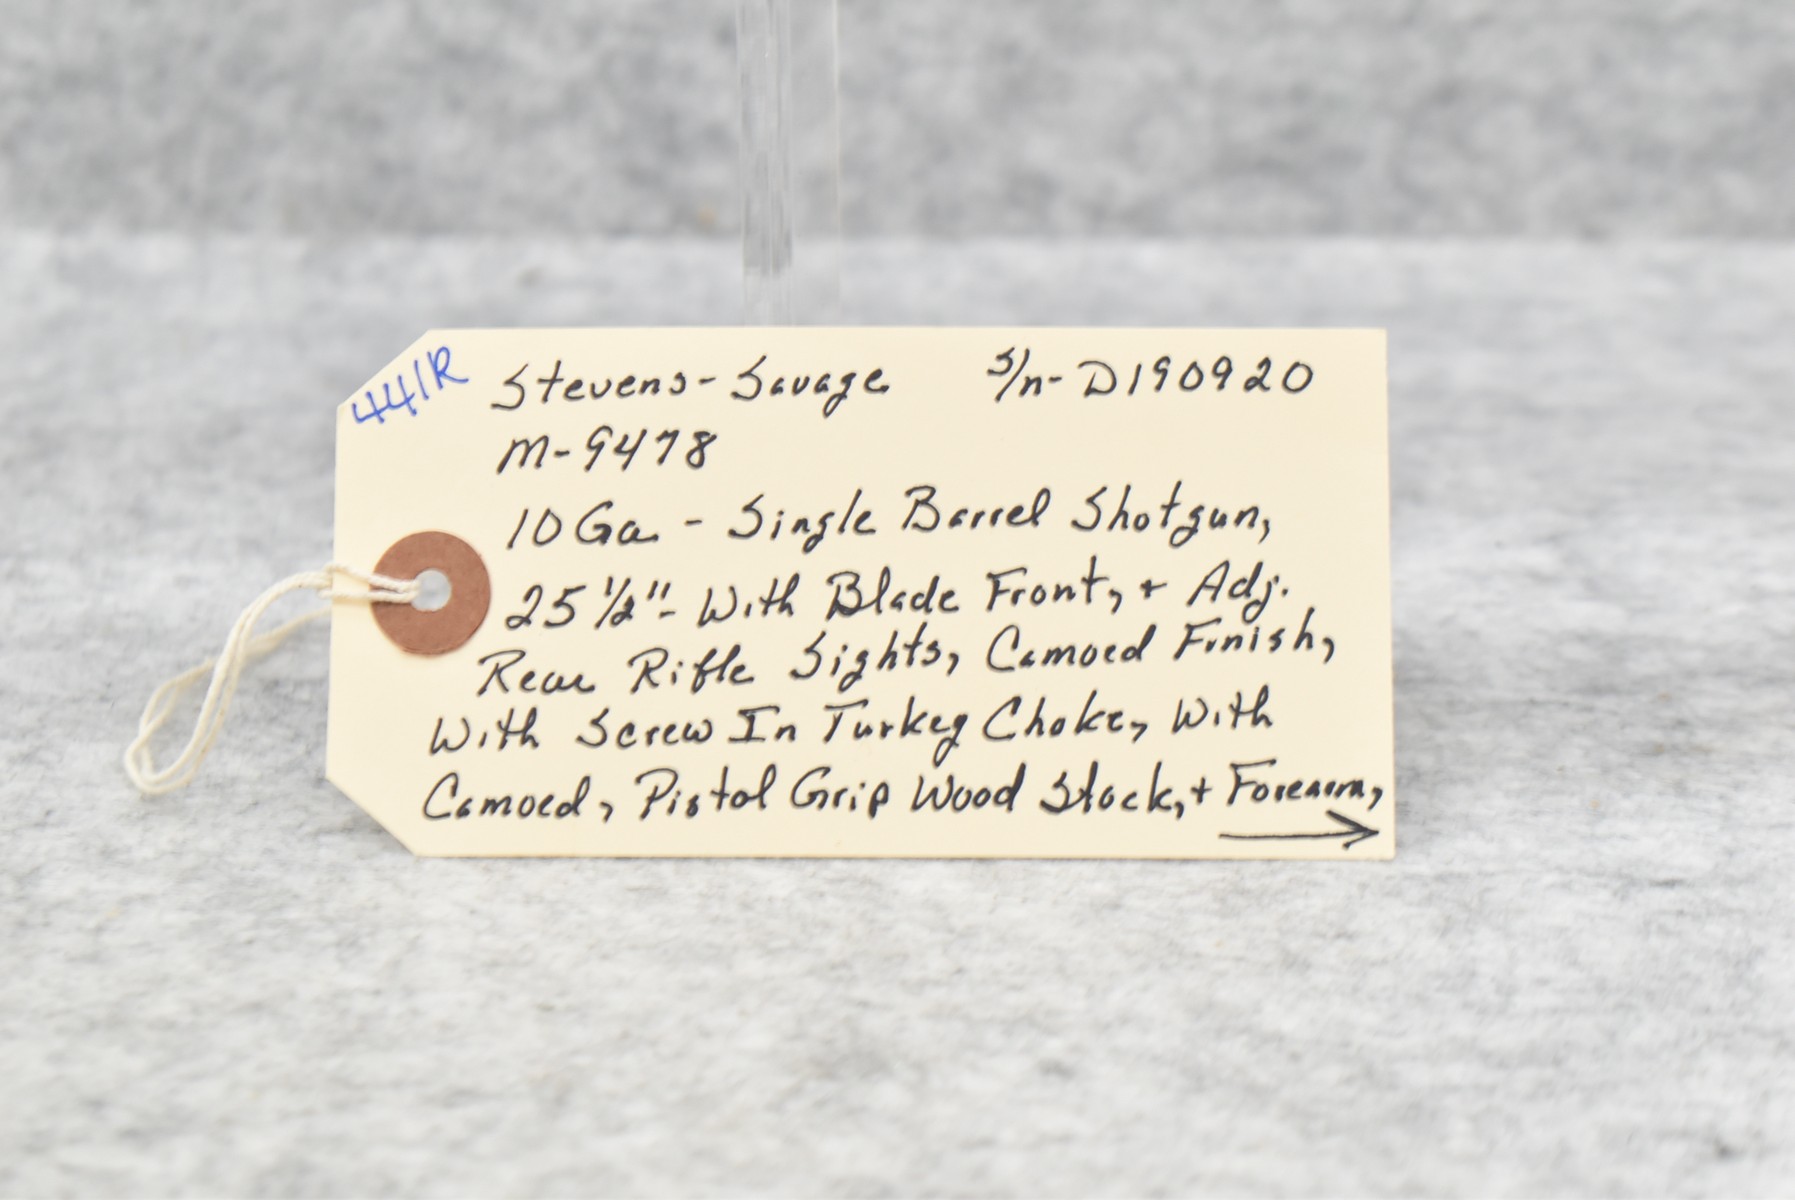 441R
Stevens-Savage S/n-D190920
M-9478
10 Ga - Single Barrel Shotgun,
25 1/2"- With Blade Front, + Adj.
Rear Rifle Sights, Camoed Finish,
With Screw In Turkey Choke, With
Camoed, Pistol Grip Wood Stock, + Forearm,
→